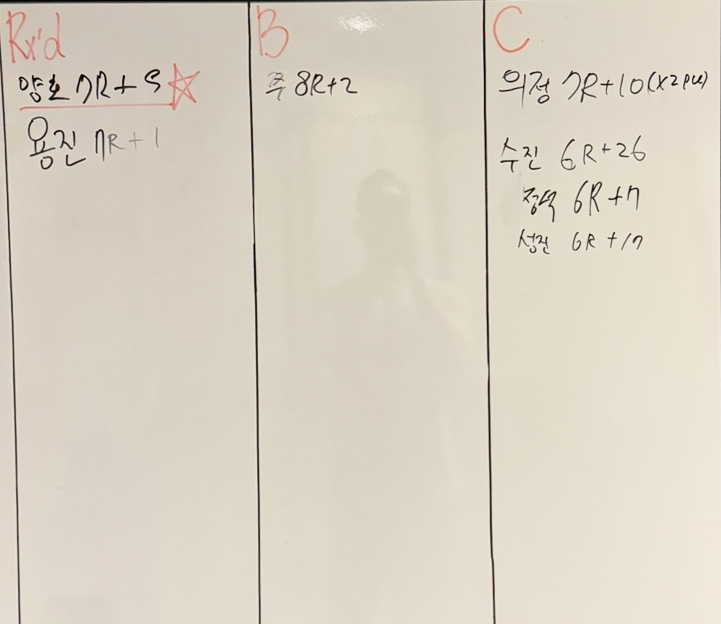 Rx'd
양호 7R+9
용진 7R+1
B
8R+2
C
의정 7R+10(x2pu)
수진 6R+26
6R+7
성진 6R+17